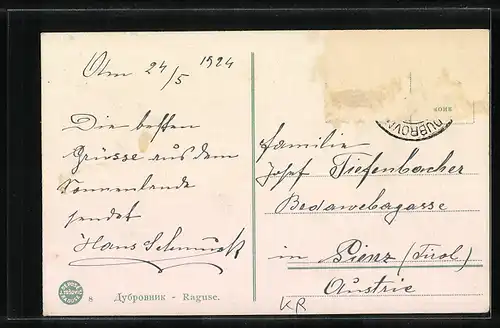 Am 24/5 1924
Die besten
Grüsse aus dem
Sonnenlande
sendet
Hans Schmuck
Familie
Josef Tiefenbacher
Bedawebagasse
in Lienz (Tirol)
Austrie
DUBROV
KR
8 Дубровник - Raguse.